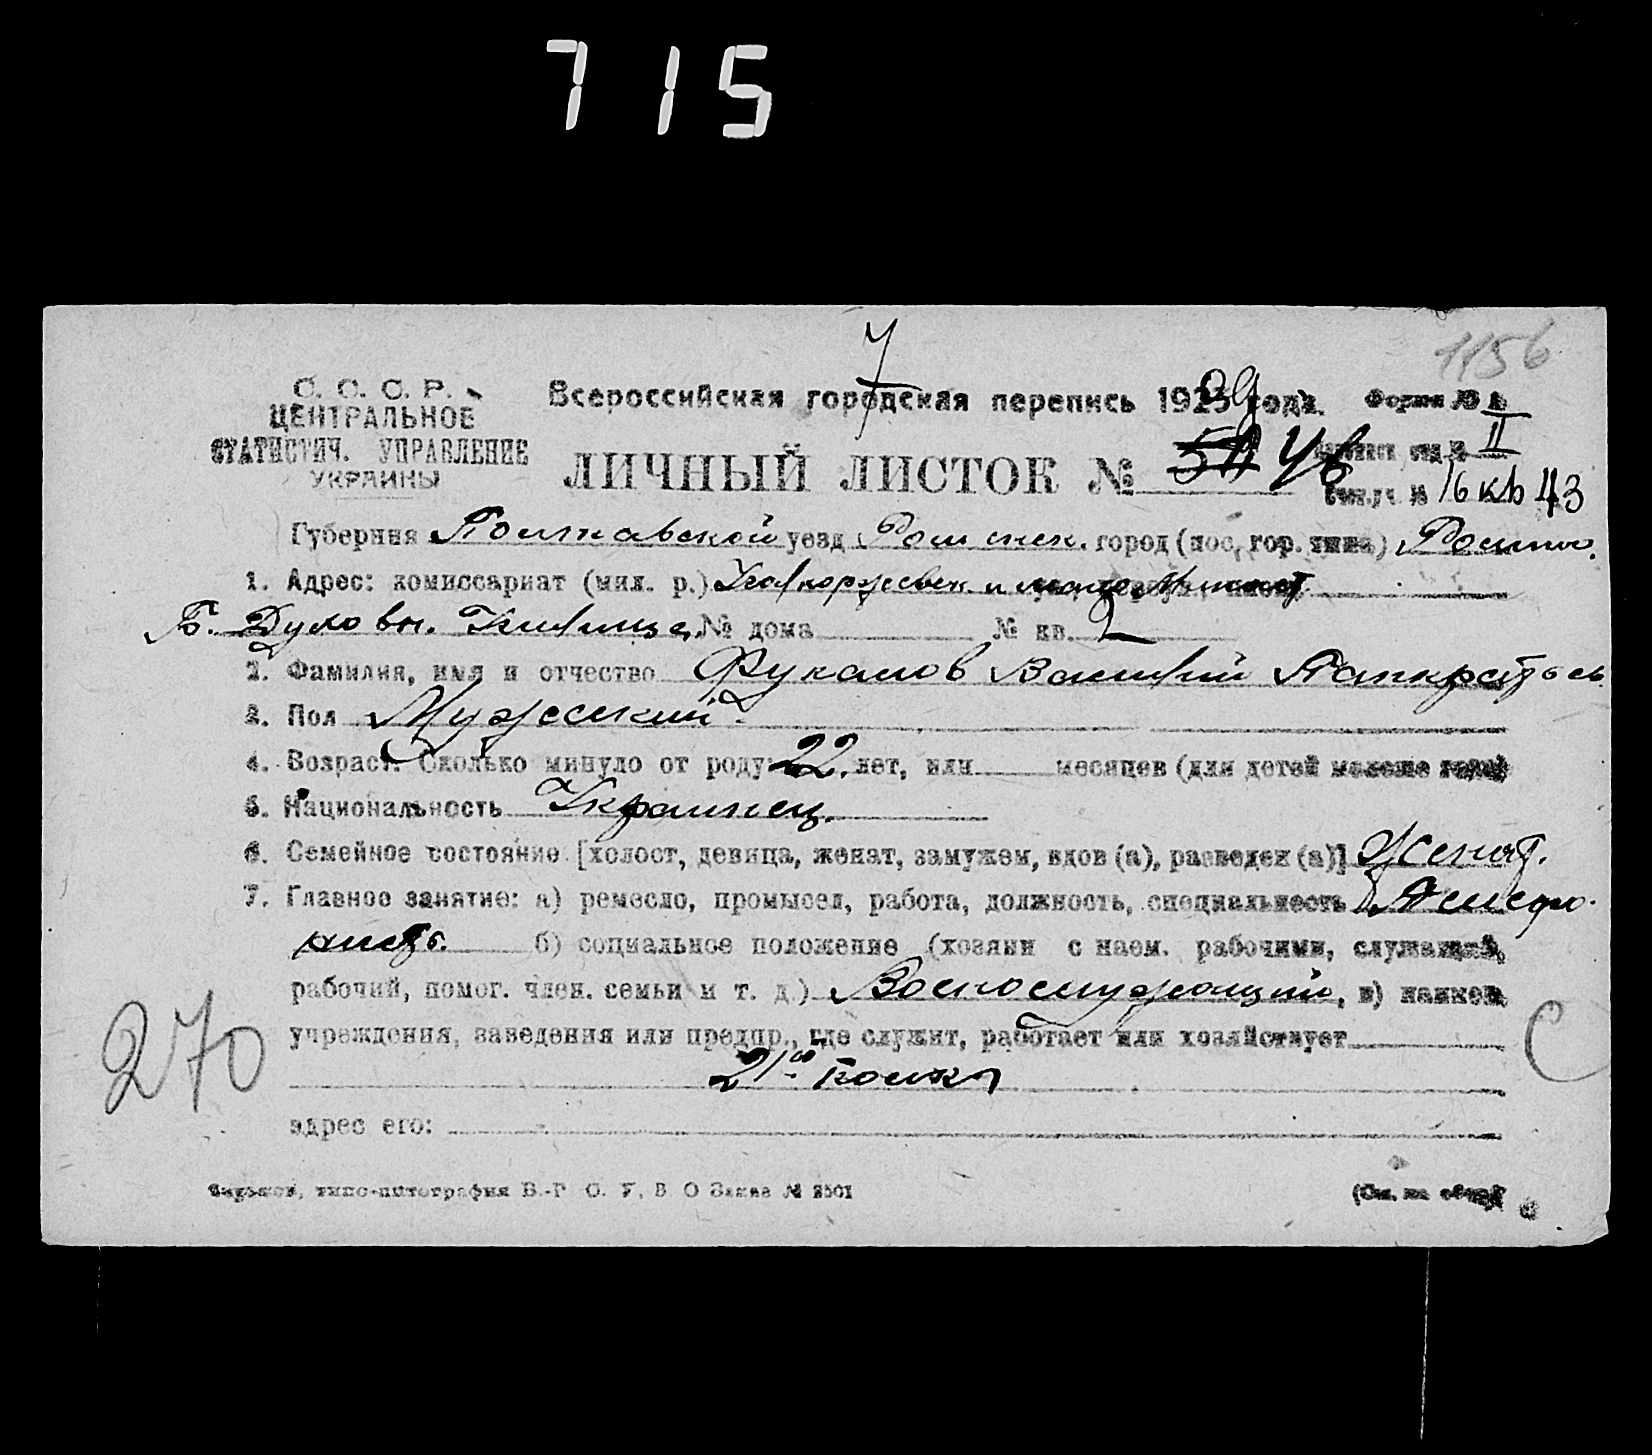 715
1156
7
С. С. С. Р.
ЦЕНТРАЛЬНОЕ
СТАТИСТИЧ. УПРАВЛЕНИЕ
УКРАИНЫ
Всероссийская городская перепись 1923 года. Форма № II
ЛИЧНЫЙ ЛИСТОК №
16 кв 43
Губерния Полтавской уезд Роменск. город (пос. гор. типа) Ромны.
1. Адрес: комиссариат (мил. р.)
Б. Духовн. Училища № дома № кв. 2
2. Фамилия, имя и отчество Василий
3. Пол Мужеский.
4. Возраст. Сколько минуло от роду 22. лет, или месяцев (для детей моложе года)
5. Национальность Украинец.
6. Семейное состояние [холост, девица, женат, замужем, вдов (а), разведен (а)] Женат.
7. Главное занятие: а) ремесло, промысел, работа, должность, специальность Телефо-
нист. б) социальное положение (хозяин с наем. рабочими, служащий,
рабочий, помог. член. семьи и т. д.) Военослужащий, в) наимен.
учреждения, заведения или предпр., где служит, работает или хозяйствует
270
С
адрес его:
Харьков, типо-литография В. О Заказ №
(См. на обор.)